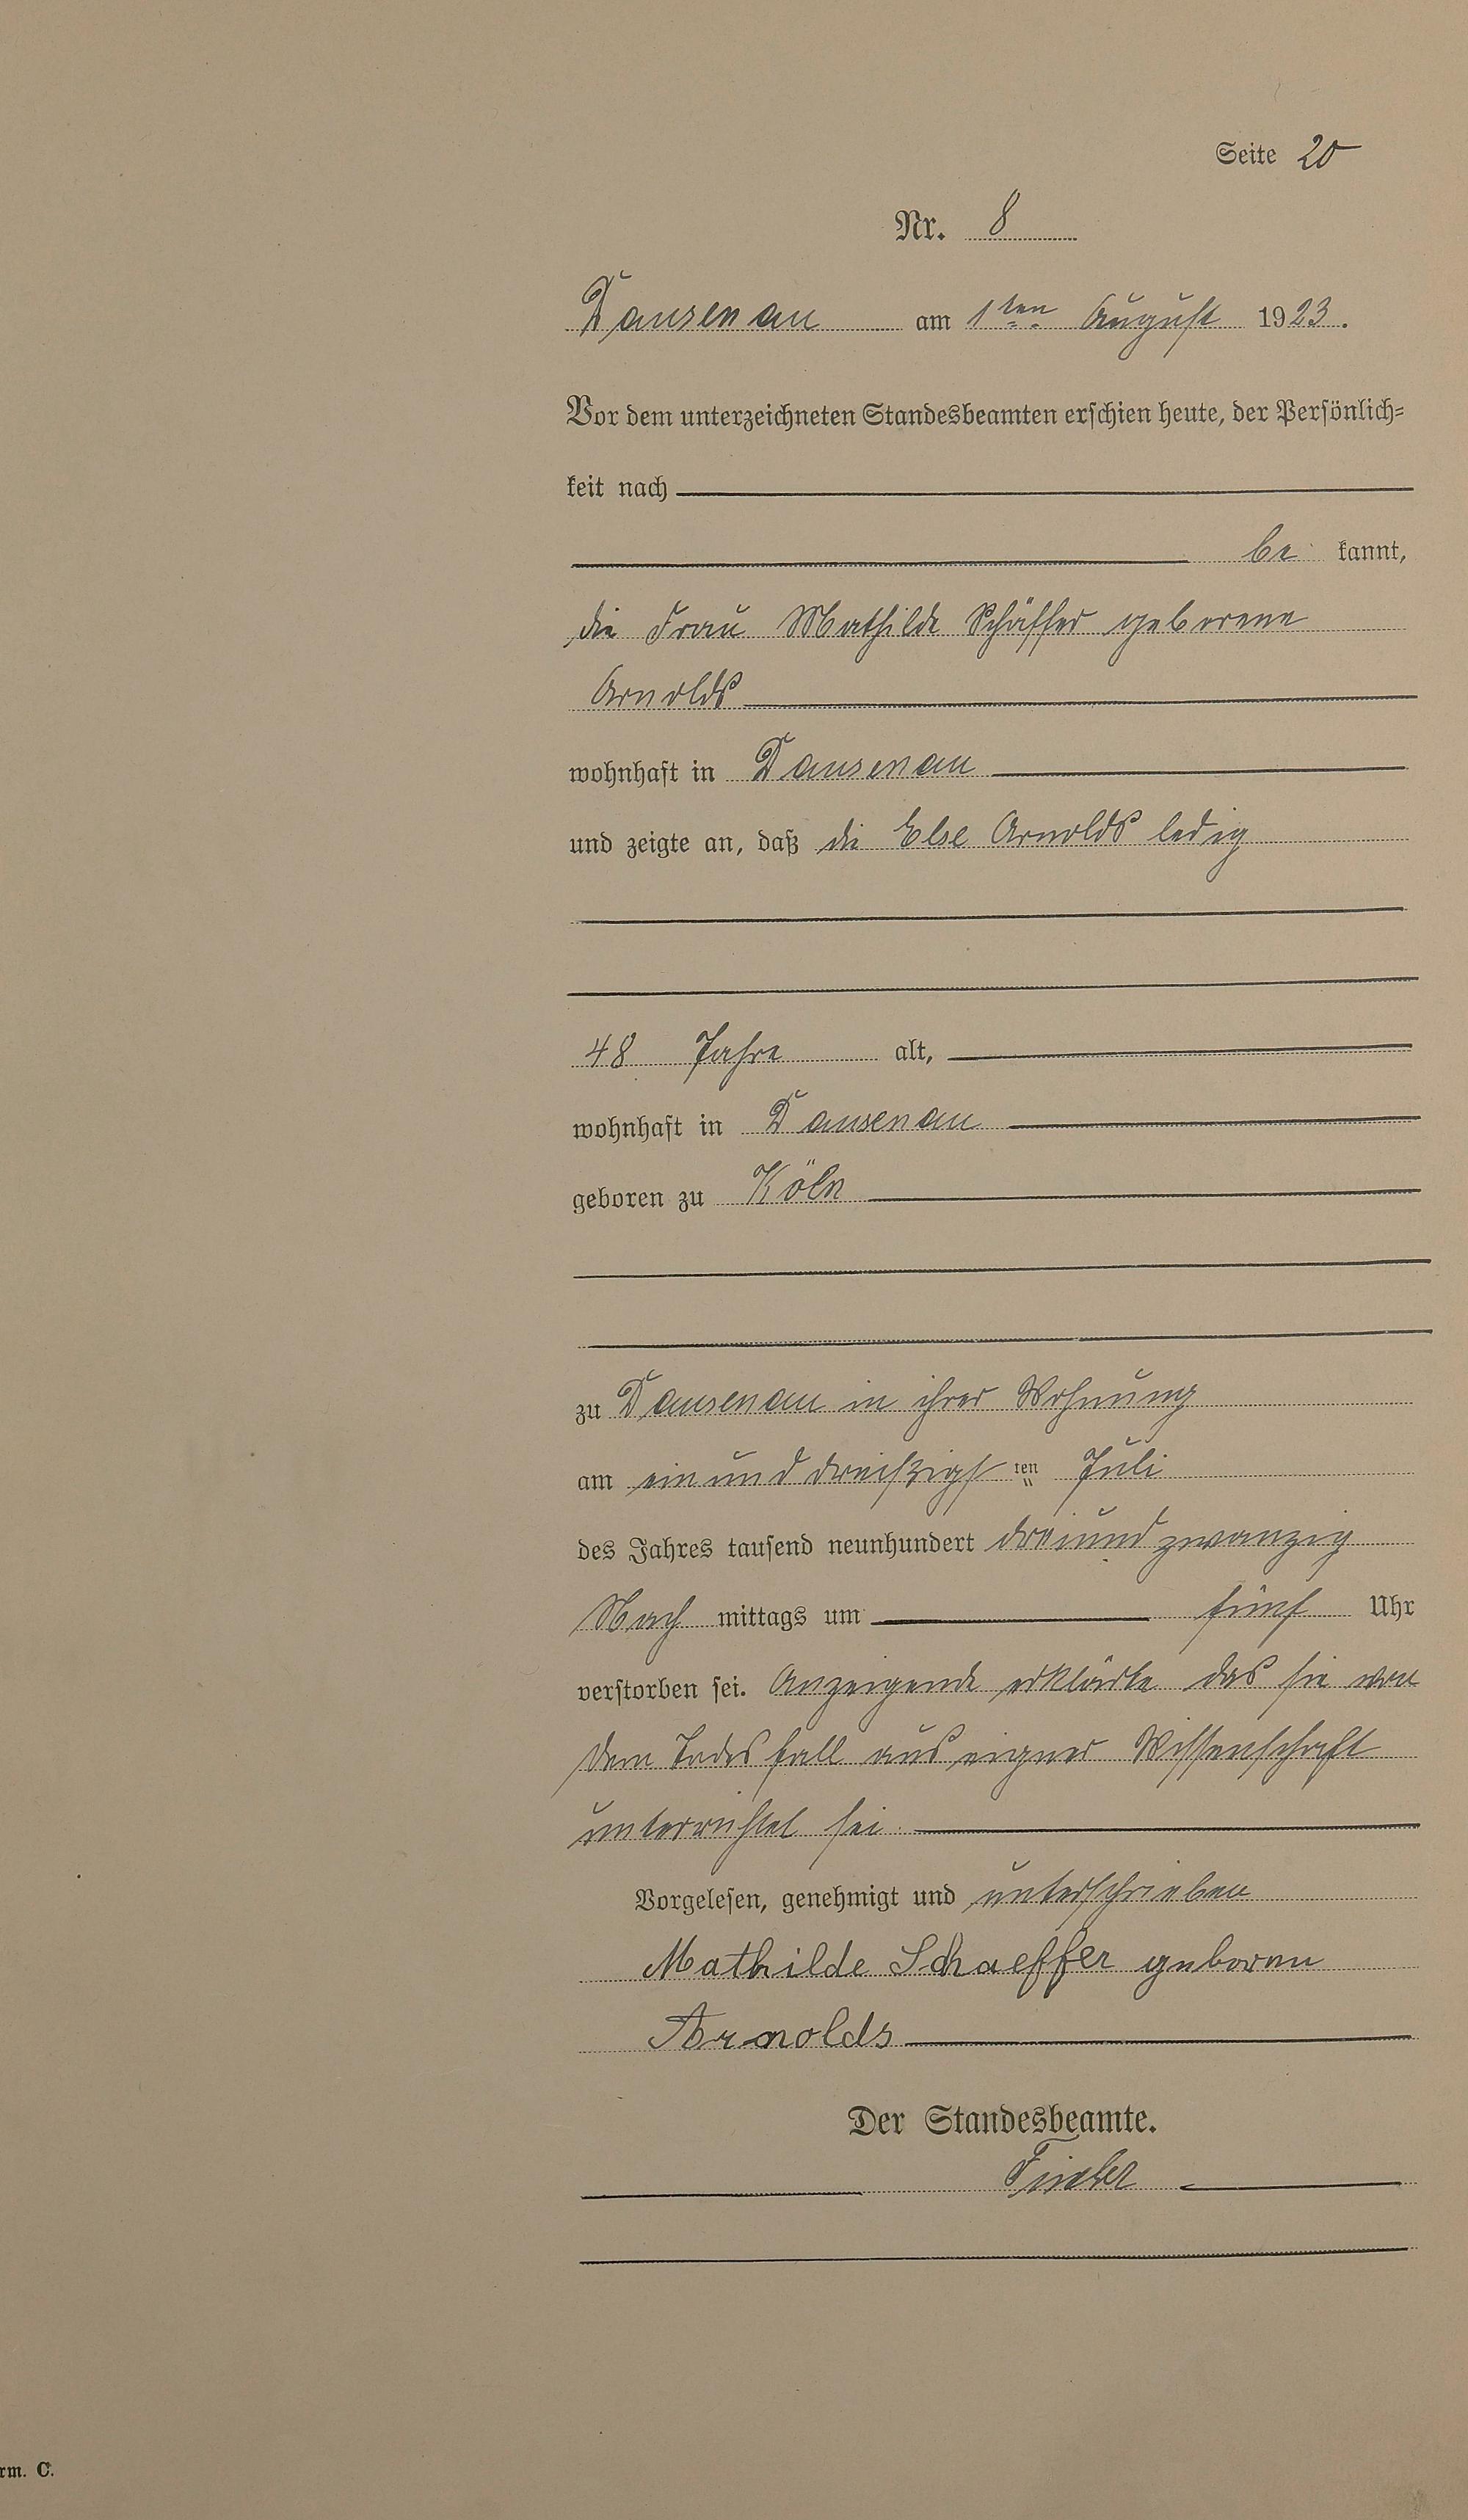 Seite 20
Nr. 8
Dausenau am 1ten August 1923.
Vor dem unterzeichneten Standesbeamten erschien heute, der Persönlich-
keit nach
be kannt,
die Frau Mathilde Schäffer geborene
Arnolds
wohnhaft in Dausenau
und zeigte an, daß die Else Arnolds ledig
48 Jahre alt,
wohnhaft in Dausenau
geboren zu Köln
zu Dausenau in ihrer Wohnung
am einunddreißigsten Juli
des Jahres tausend neunhundert dreiundzwanzig
Nach mittags um fünf Uhr
verstorben sei. Anzeigende erklärte das sie von
dem Todesfall aus eigner Wissenschaft
unterrichtet sei.
Vorgelesen, genehmigt und unterschrieben
Mathilde Schaeffer geboren
Arnolds
Der Standesbeamte.
rm. C.